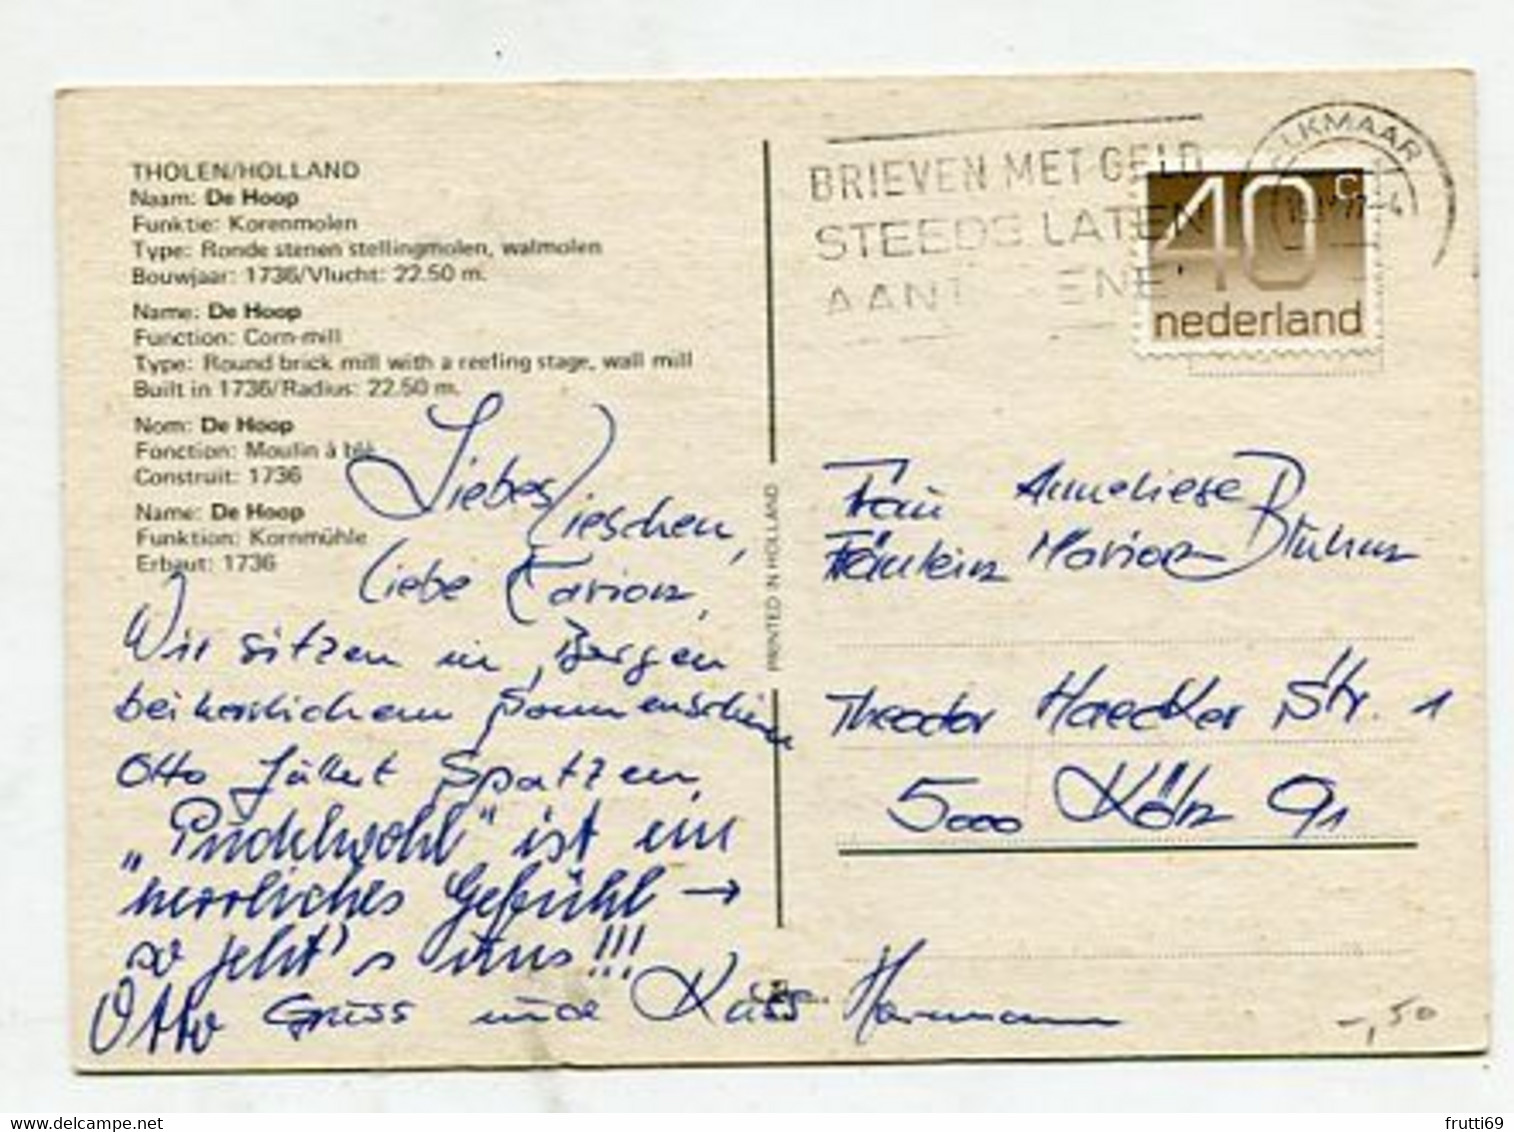 THOLEN/HOLLAND
Naam: De Hoop
Funktie: Korenmolen
Type: Ronde stenen stellingmolen, walmolen
Bouwjaar: 1736/Vlucht: 22.50 m.
Name: De Hoop
Function: Corn-mill
Type: Round brick mill with a reefing stage, wall mill
Built in 1736/Radius: 22.50 m.
Nom: De Hoop
Fonction: Moulin à blé
Construit: 1736
Name: De Hoop
Funktion: Kornmühle
Erbaut: 1736
Liebes Lieschen,
liebe Marion,
Wir sitzen in Bergen
bei herrlichem Sonnenschein
Otto füttert Spatzen,
„Pudelwohl" ist ein
herrliches Gefühl →
so geht's uns!!!
Otto Gruss und Kuss Hermann
PRINTED IN HOLLAND
BRIEVEN MET GELD
STEEDS LATEN
AANT ENE
ALKMAAR
40c
nederland
Frau Anneliese
Fräulein Marion Bluhm
Theodor Haecker Str. 1
5000 Köln 91
-,50
frutti69